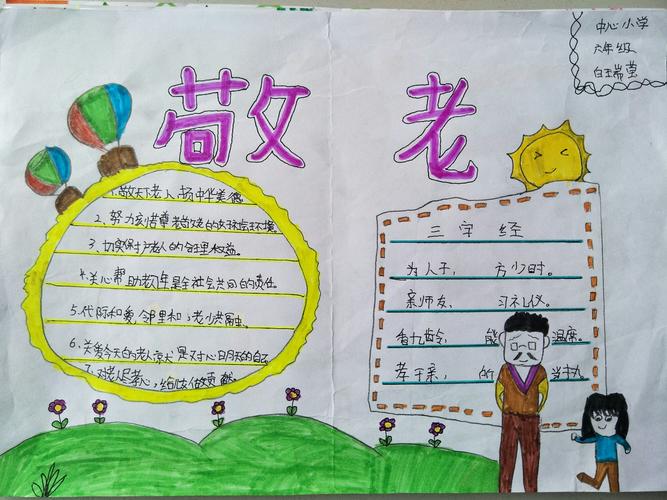 敬老
中心小学
六年级
白玉嵩莹
1.敬天下老人,扬中华美德
2、努力创造尊老敬老的好社会环境
3、切实保护老人的合理权益。
4.关心帮助老年是全社会共同的责任。
5.代际和爱邻里和,老少共融融、
6、关爱今天的老人就是关心明天的自己
7.对老人尽孝心,给家做贡献
三字经
为人子, 方少时。
亲师友、 习礼仪。
香九龄, 能温席。
孝于亲, 所当执。